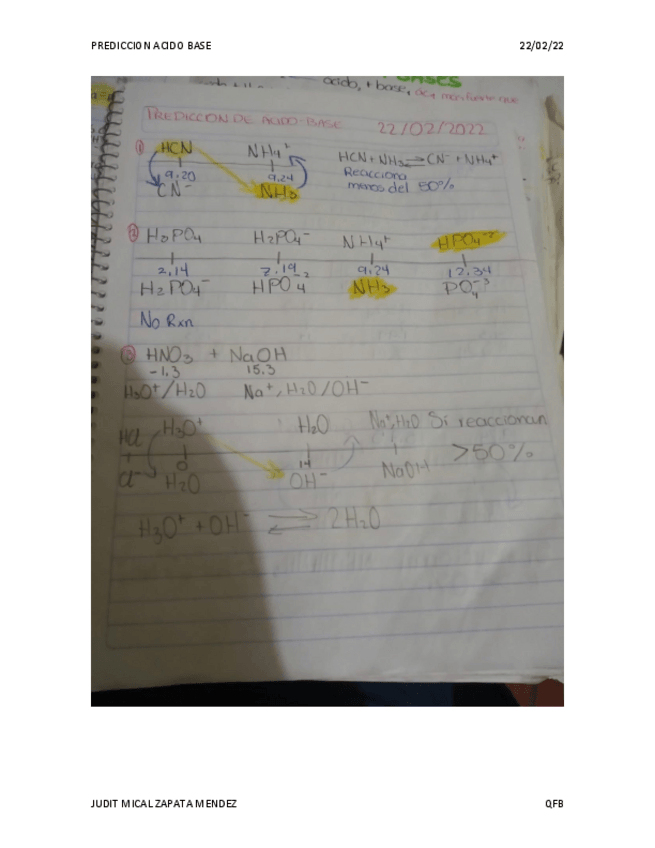 PREDICCION ACIDO BASE 22/02/22
acido, + base,
PREDICCION DE ACIDO-BASE 22/02/2022
① HCN NH₄⁺ HCN + NH₃ ⇌ CN⁻ + NH₄⁺
9.20 9.24 Reacciona
CN⁻ NH₃ menos del 50%
② H₃PO₄ H₂PO₄⁻ NH₄⁺ HPO₄⁻²
2,14 7.19 9.24 12.34
H₂PO₄⁻ HPO₄⁻² NH₃ PO₄⁻³
No Rxn
③ HNO₃ + NaOH
-1.3 15.3
H₃O⁺/H₂O Na⁺, H₂O/OH⁻
HCl H₃O⁺ H₂O Na⁺,H₂O Si reaccionan
0 14 >50%
Cl⁻ H₂O OH⁻ NaOH
H₃O⁺ + OH⁻ ⇌ 2H₂O
JUDIT MICAL ZAPATA MENDEZ QFB